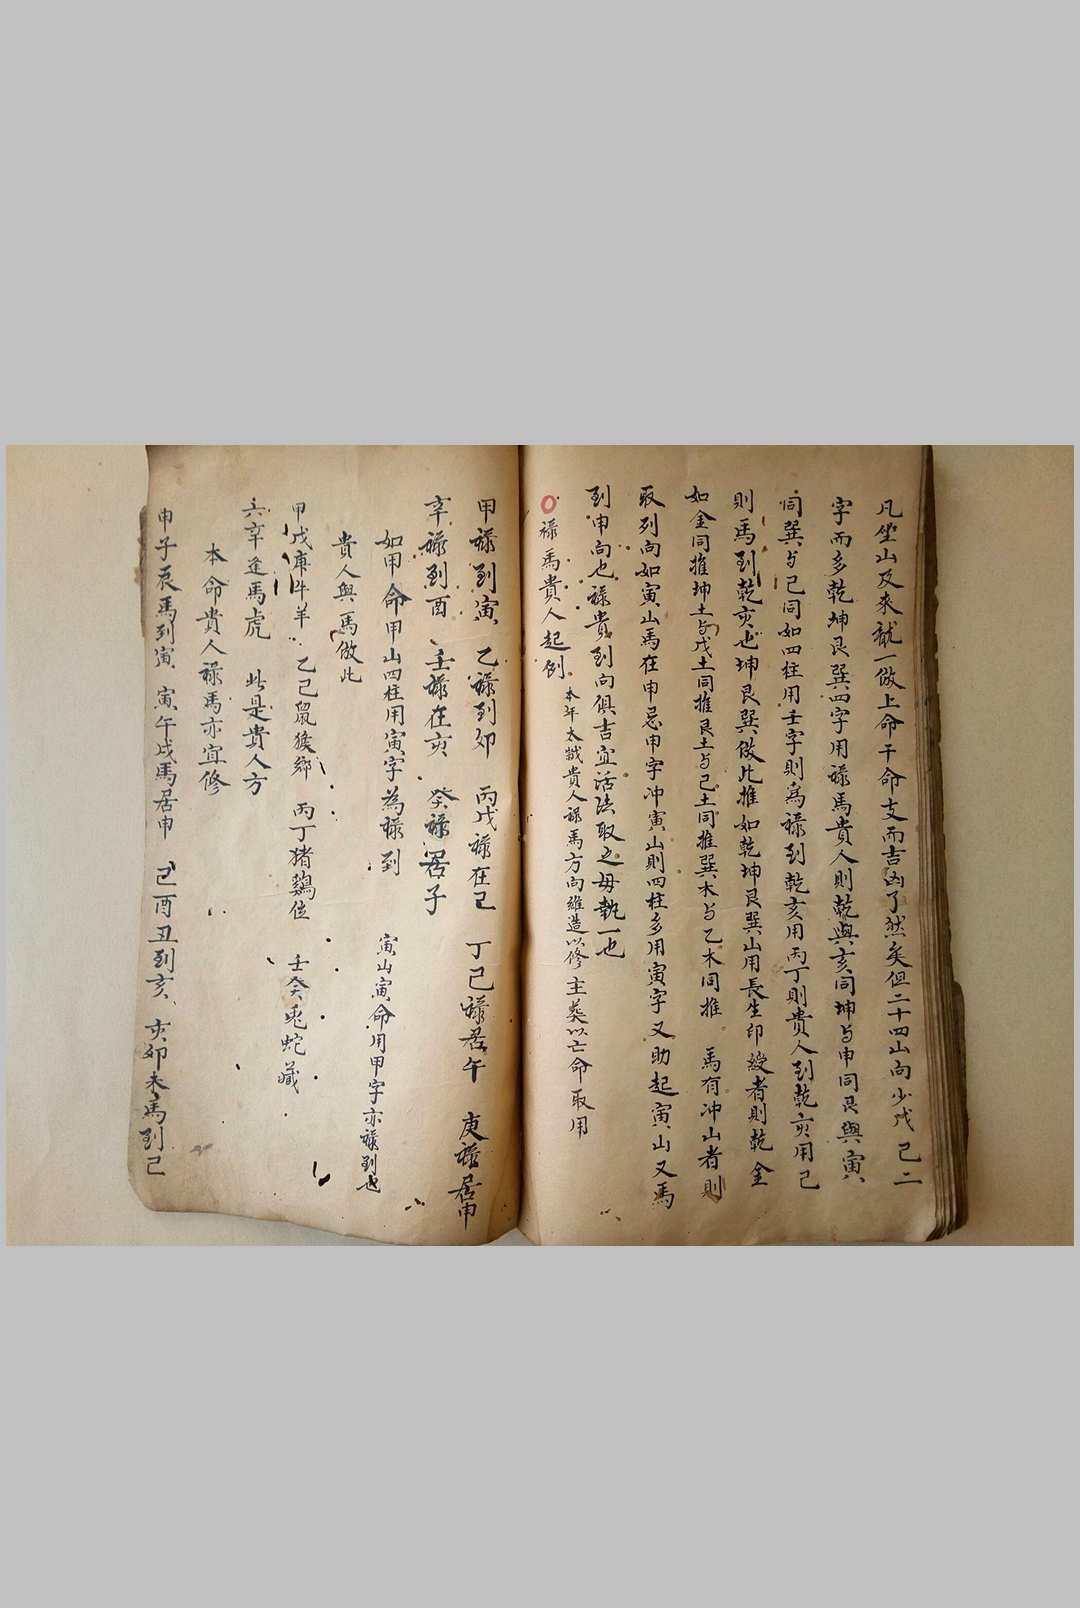 凡坐山及來龍一倣上命干命支而吉凶了然矣但二十四山向少戊己二
字而多乾坤艮巽四字用祿馬貴人則乾與亥同坤与申同艮與寅
同巽与巳同如四柱用壬字則為祿到乾亥用丙丁則貴人到乾亥用巳
則馬到乾亥也坤艮巽倣此推如乾坤艮巽山用長生印綬者則乾金
如金同推坤土与戊土同推艮土与己土同推巽木与乙木同推 馬有冲山者則
取到向如寅山馬在申忌申字冲寅山則四柱多用寅字又助起寅山又馬
到申向也祿貴到向俱吉宜活法取之毋執一也
○祿馬貴人起例 本年太歲貴人祿馬方向維造以修主葬以亡命取用
甲祿到寅 乙祿到卯 丙戊祿在巳 丁己祿居午 庚祿居申
辛祿到酉 壬祿在亥 癸祿居子
如甲命甲山四柱用寅字為祿到 寅山寅命用甲字亦祿到也
貴人與馬倣此
甲戊庚牛羊 乙己鼠猴鄉 丙丁猪鷄位 壬癸兎蛇藏
六辛逢馬虎 此是貴人方
本命貴人祿馬亦宜修
申子辰馬到寅 寅午戌馬居申 巳酉丑到亥 亥卯未馬到巳